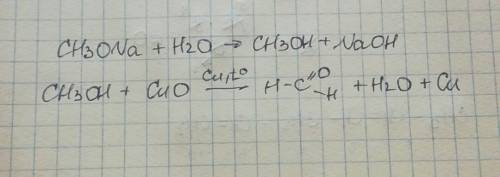 CH3ONa + H2O → CH3OH + NaOH
CH3OH + CuO Cu,t° H-C=O -H + H2O + Cu